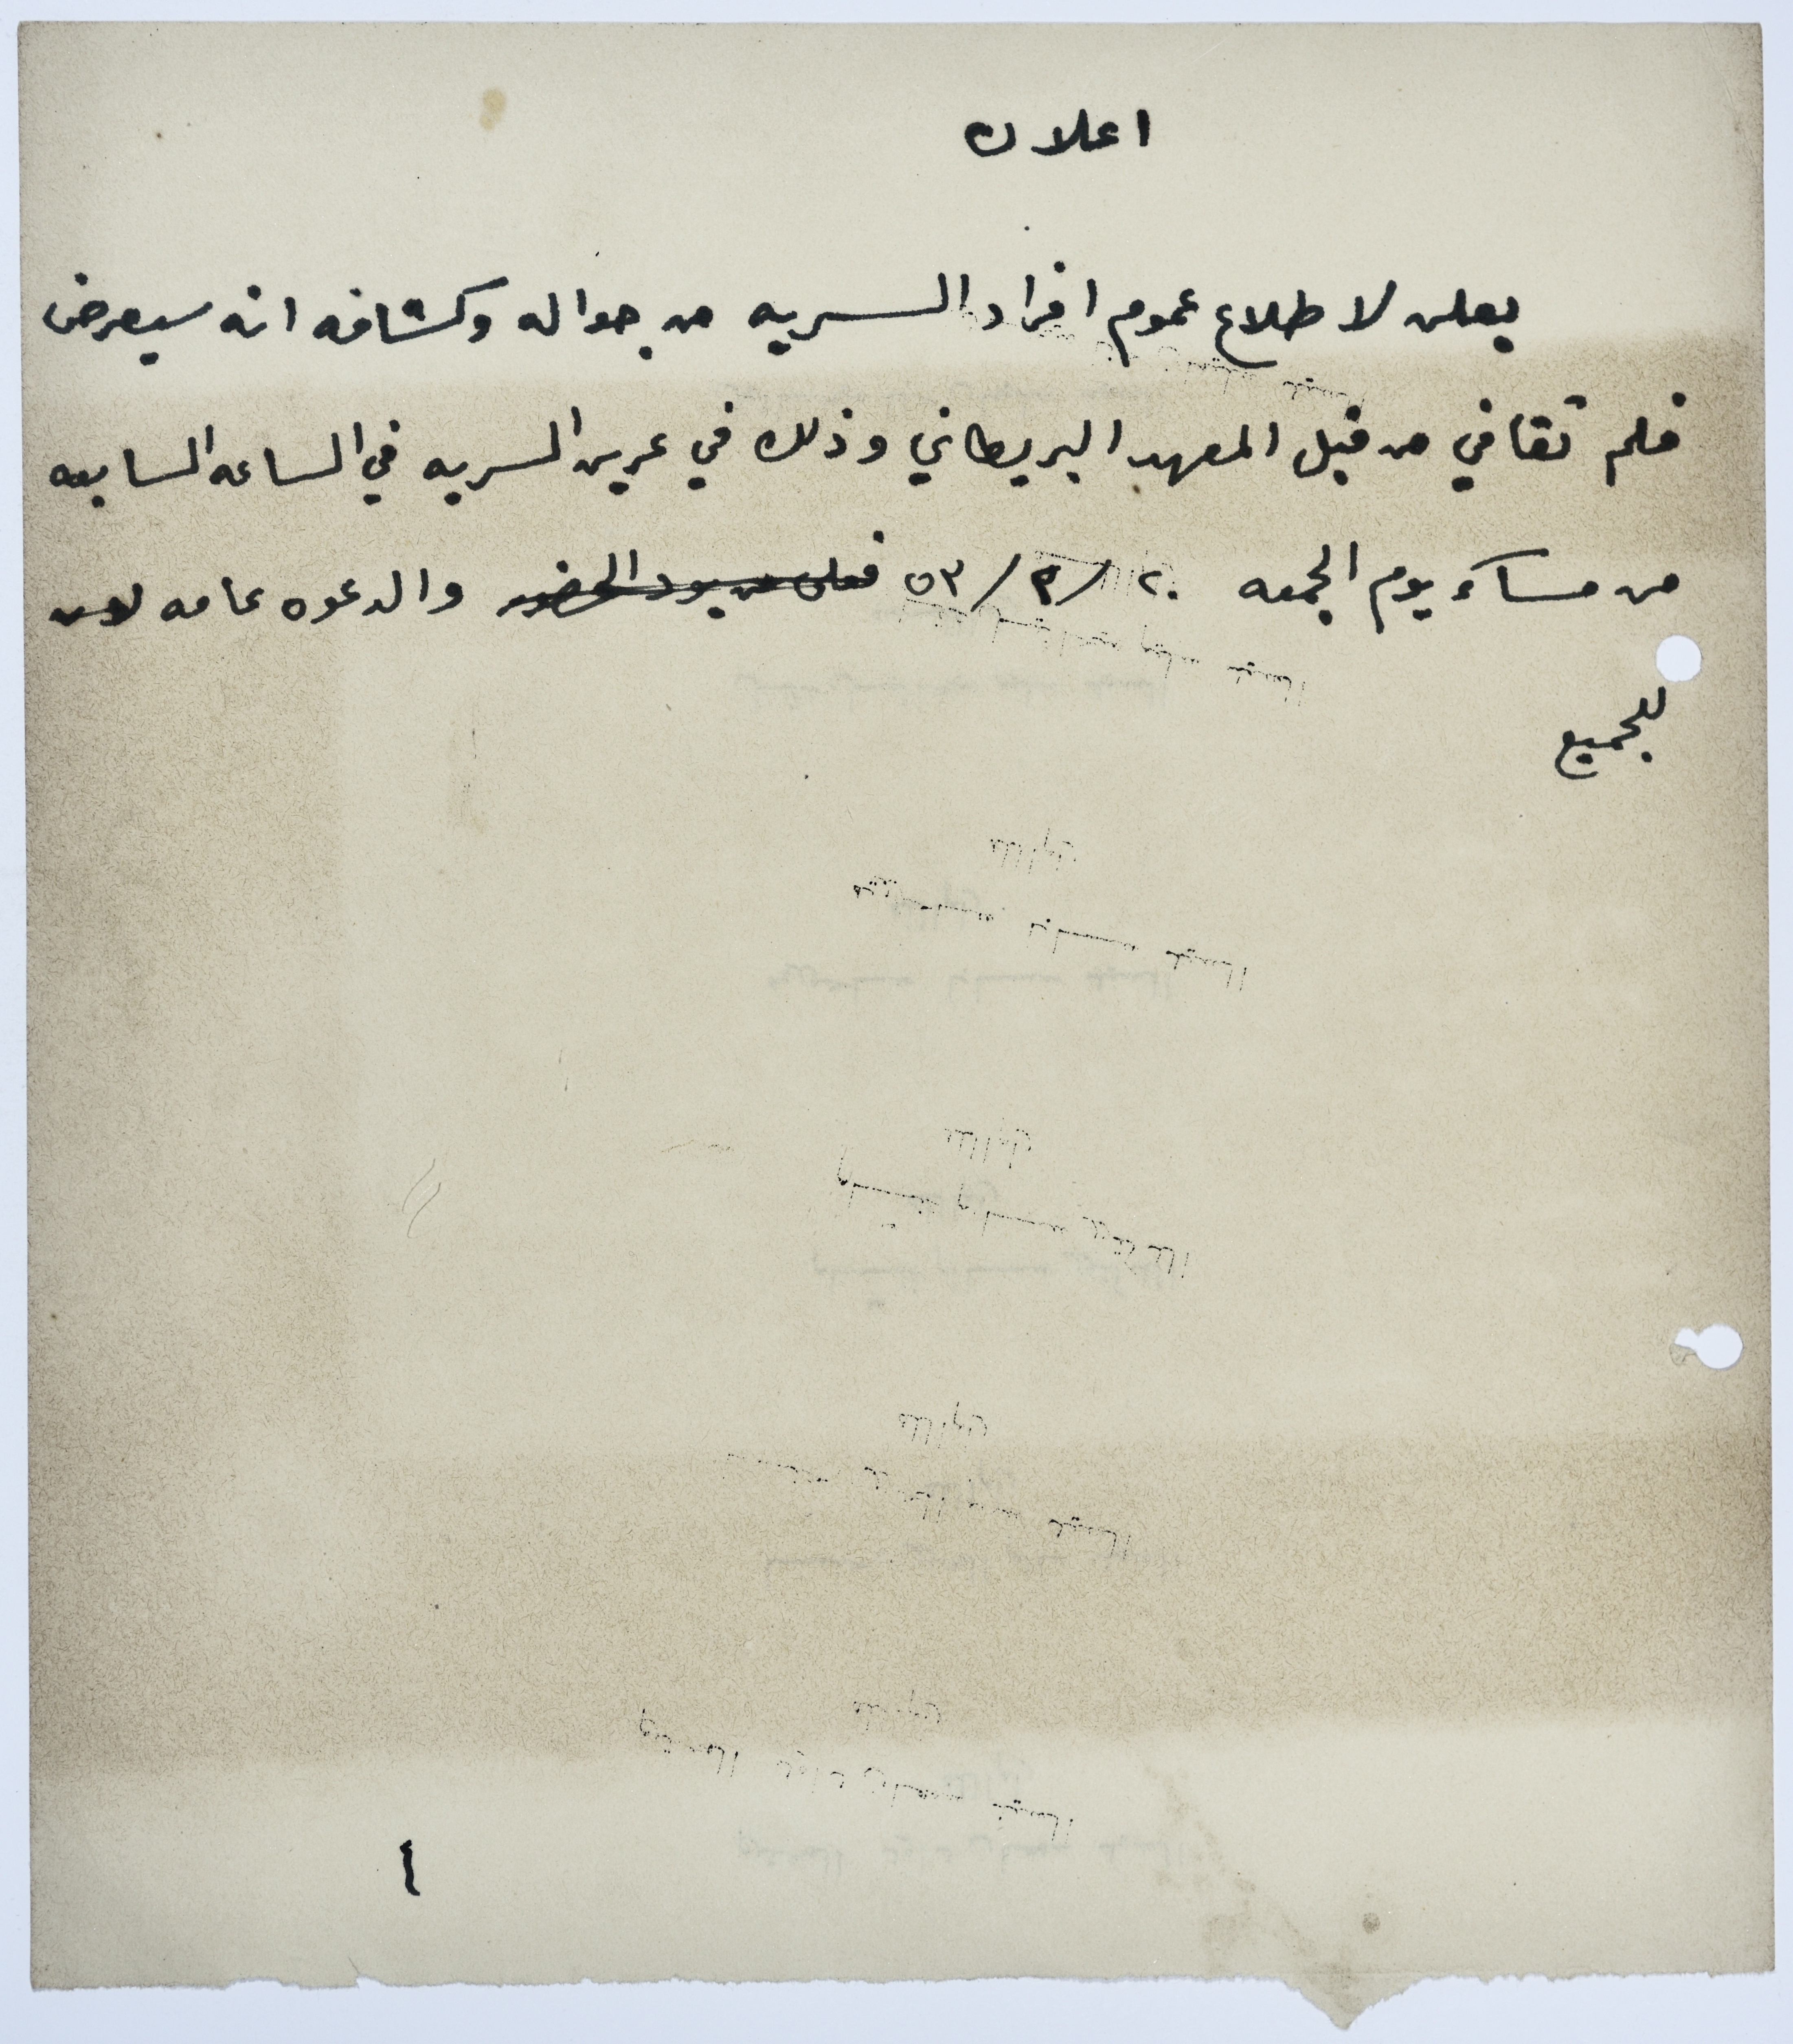 اعلان
يعلن لاطلاع عموم افراد السريه من جواله وكشافه انه سيعرض
فلم ثقافي من قبل المعهد البريطاني وذلك في عرين السريه في الساعه السابعه
من مساء يوم الجمعه ٢٠/٣/٥٣ فعلى من يود الحضور والدعوه عامه
للجميع